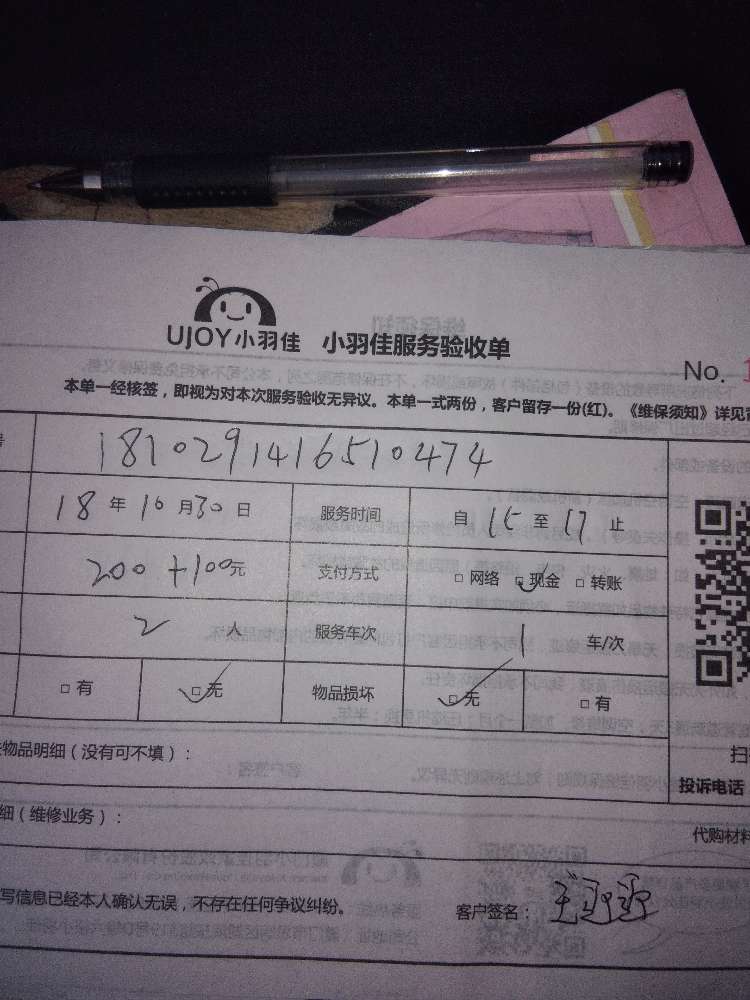 UJOY小羽佳 小羽佳服务验收单
No. 1
本单一经核签，即视为对本次服务验收无异议。本单一式两份，客户留存一份(红)。《维保须知》详见背
1810291416510474
18年10月30日 服务时间 自15至17止
200+100元 支付方式 □网络 □现金 □转账
2人 服务车次 1 车/次
□有 □无 物品损坏 □无 □有
物品明细（没有可不填）： 扫
投诉电话
细（维修业务）： 代购材料
写信息已经本人确认无误，不存在任何争议纠纷。 客户签名：